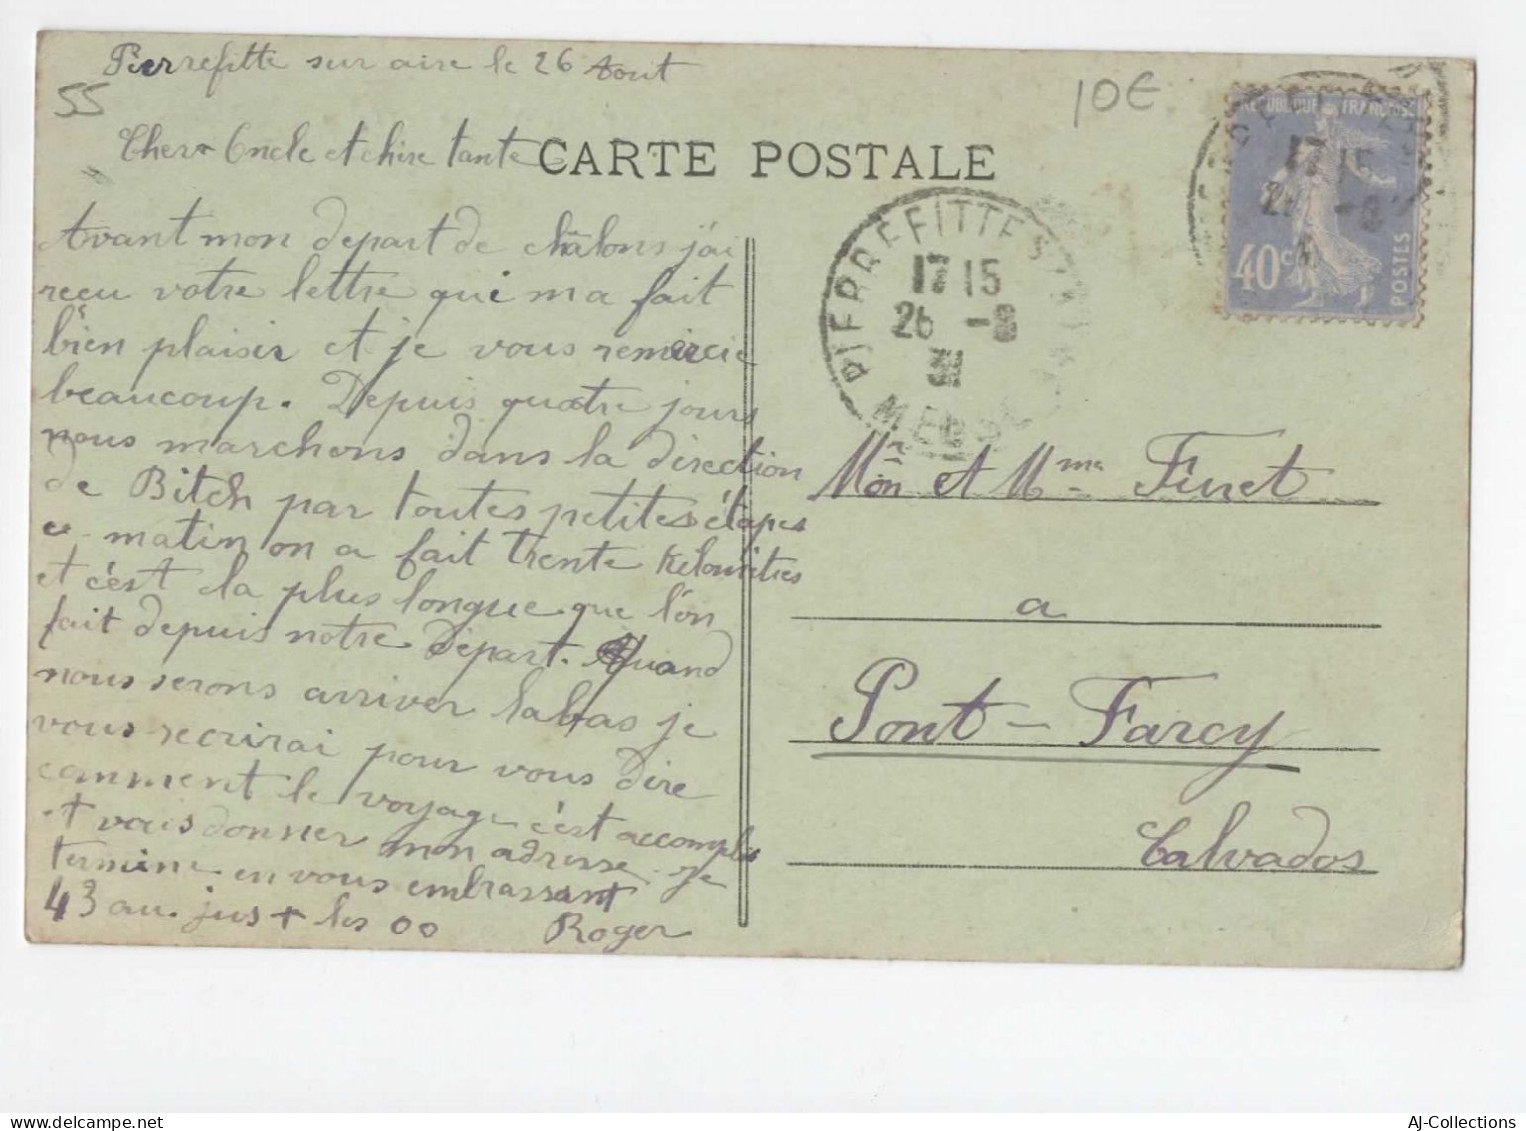 Pierrefitte sur aire le 26 Aout
55
10€
Cher Oncle et chère tante
CARTE POSTALE
Avant mon depart de Châlons j'ai
reçu votre lettre qui ma fait
bien plaisir et je vous remercie
beaucoup. Depuis quatre jours
nous marchons dans la direction
de Bitch par toutes petites étapes
ce matin on a fait trente kelomètres
et c'est la plus longue que l'on
fait depuis notre Départ. Quand
nous serons arriver labas je
vous recrirai pour vous dire
comment le voyage c'est accomplis
et vous donner mon adresse. je
termine en vous embrassant
43 au jus + les 00 Roger
REPUBLIQUE FRANÇAISE
40c
POSTES
17 15
26 -8
PIERREFITTE S
17 15
26 -8
MEUSE
Mr et Mme Finet
a
Pont-Farcy
Calvados
AJ-Collections